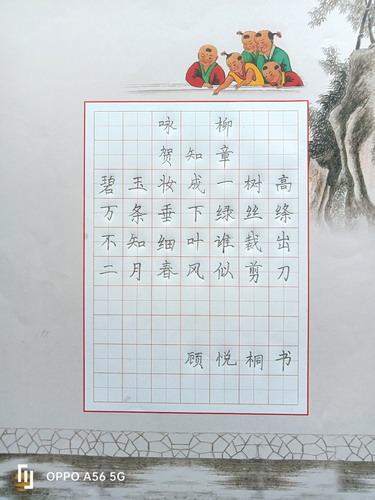 咏柳
贺知章
碧玉妆成一树高
万条垂下绿丝绦
不知细叶谁裁出
二月春风似剪刀
顾悦桐书
OPPO A56 5G